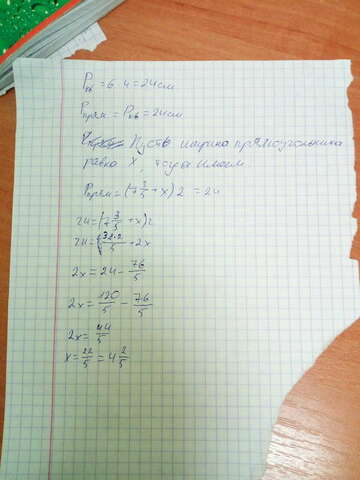 Pкв = 6 · 4 = 24 см
Pпрям = Pкв = 24 см
Пусть ширина прямоугольника
равна x, тогда имеем
Pпрям = (7 3/5 + x) 2 = 24
24 = (7 3/5 + x) 2
24 = 38·2/5 + 2x
2x = 24 - 76/5
2x = 120/5 - 76/5
2x = 44/5
x = 22/5 = 4 2/5